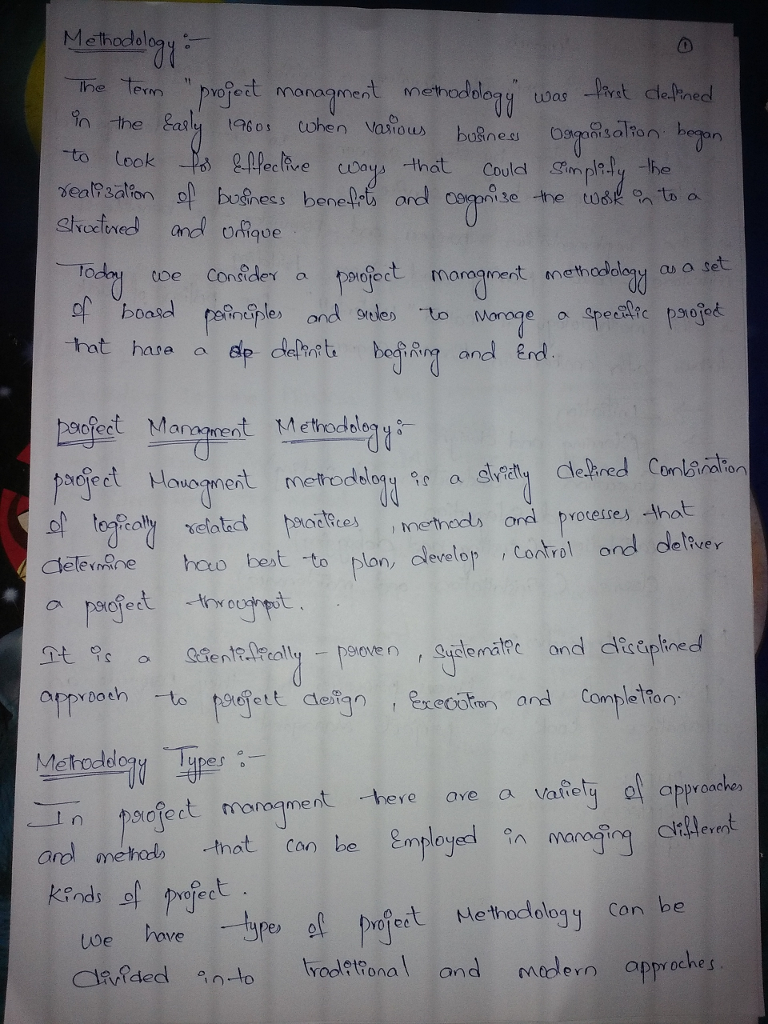 Methodology :-
①
The Term "project managment methodology" was first defined
in the Early 1960s when various business Organisation began
to look for Effective ways that could simplify the
realisation of business benefits and organise the work in to a
structured and unique.
Today we consider a project managment methodology as a set
of board principles and rules to Manage a specific project
that hase a definite begining and End.
project Managment Methodology :-
project Managment methodology is a strictly defined Combination
of logically related practices , methods and processes that
determine how best to plan, develop , Control and deliver
a project throughput.
It is a scientifically - proven , systematic and disciplined
approach to project design , Execution and Completion.
Methodology Types :-
In project managment there are a variety of approaches
and methods that can be Employed in managing different
kinds of project.
we have types of project Methodology can be
divided in to traditional and modern approches.